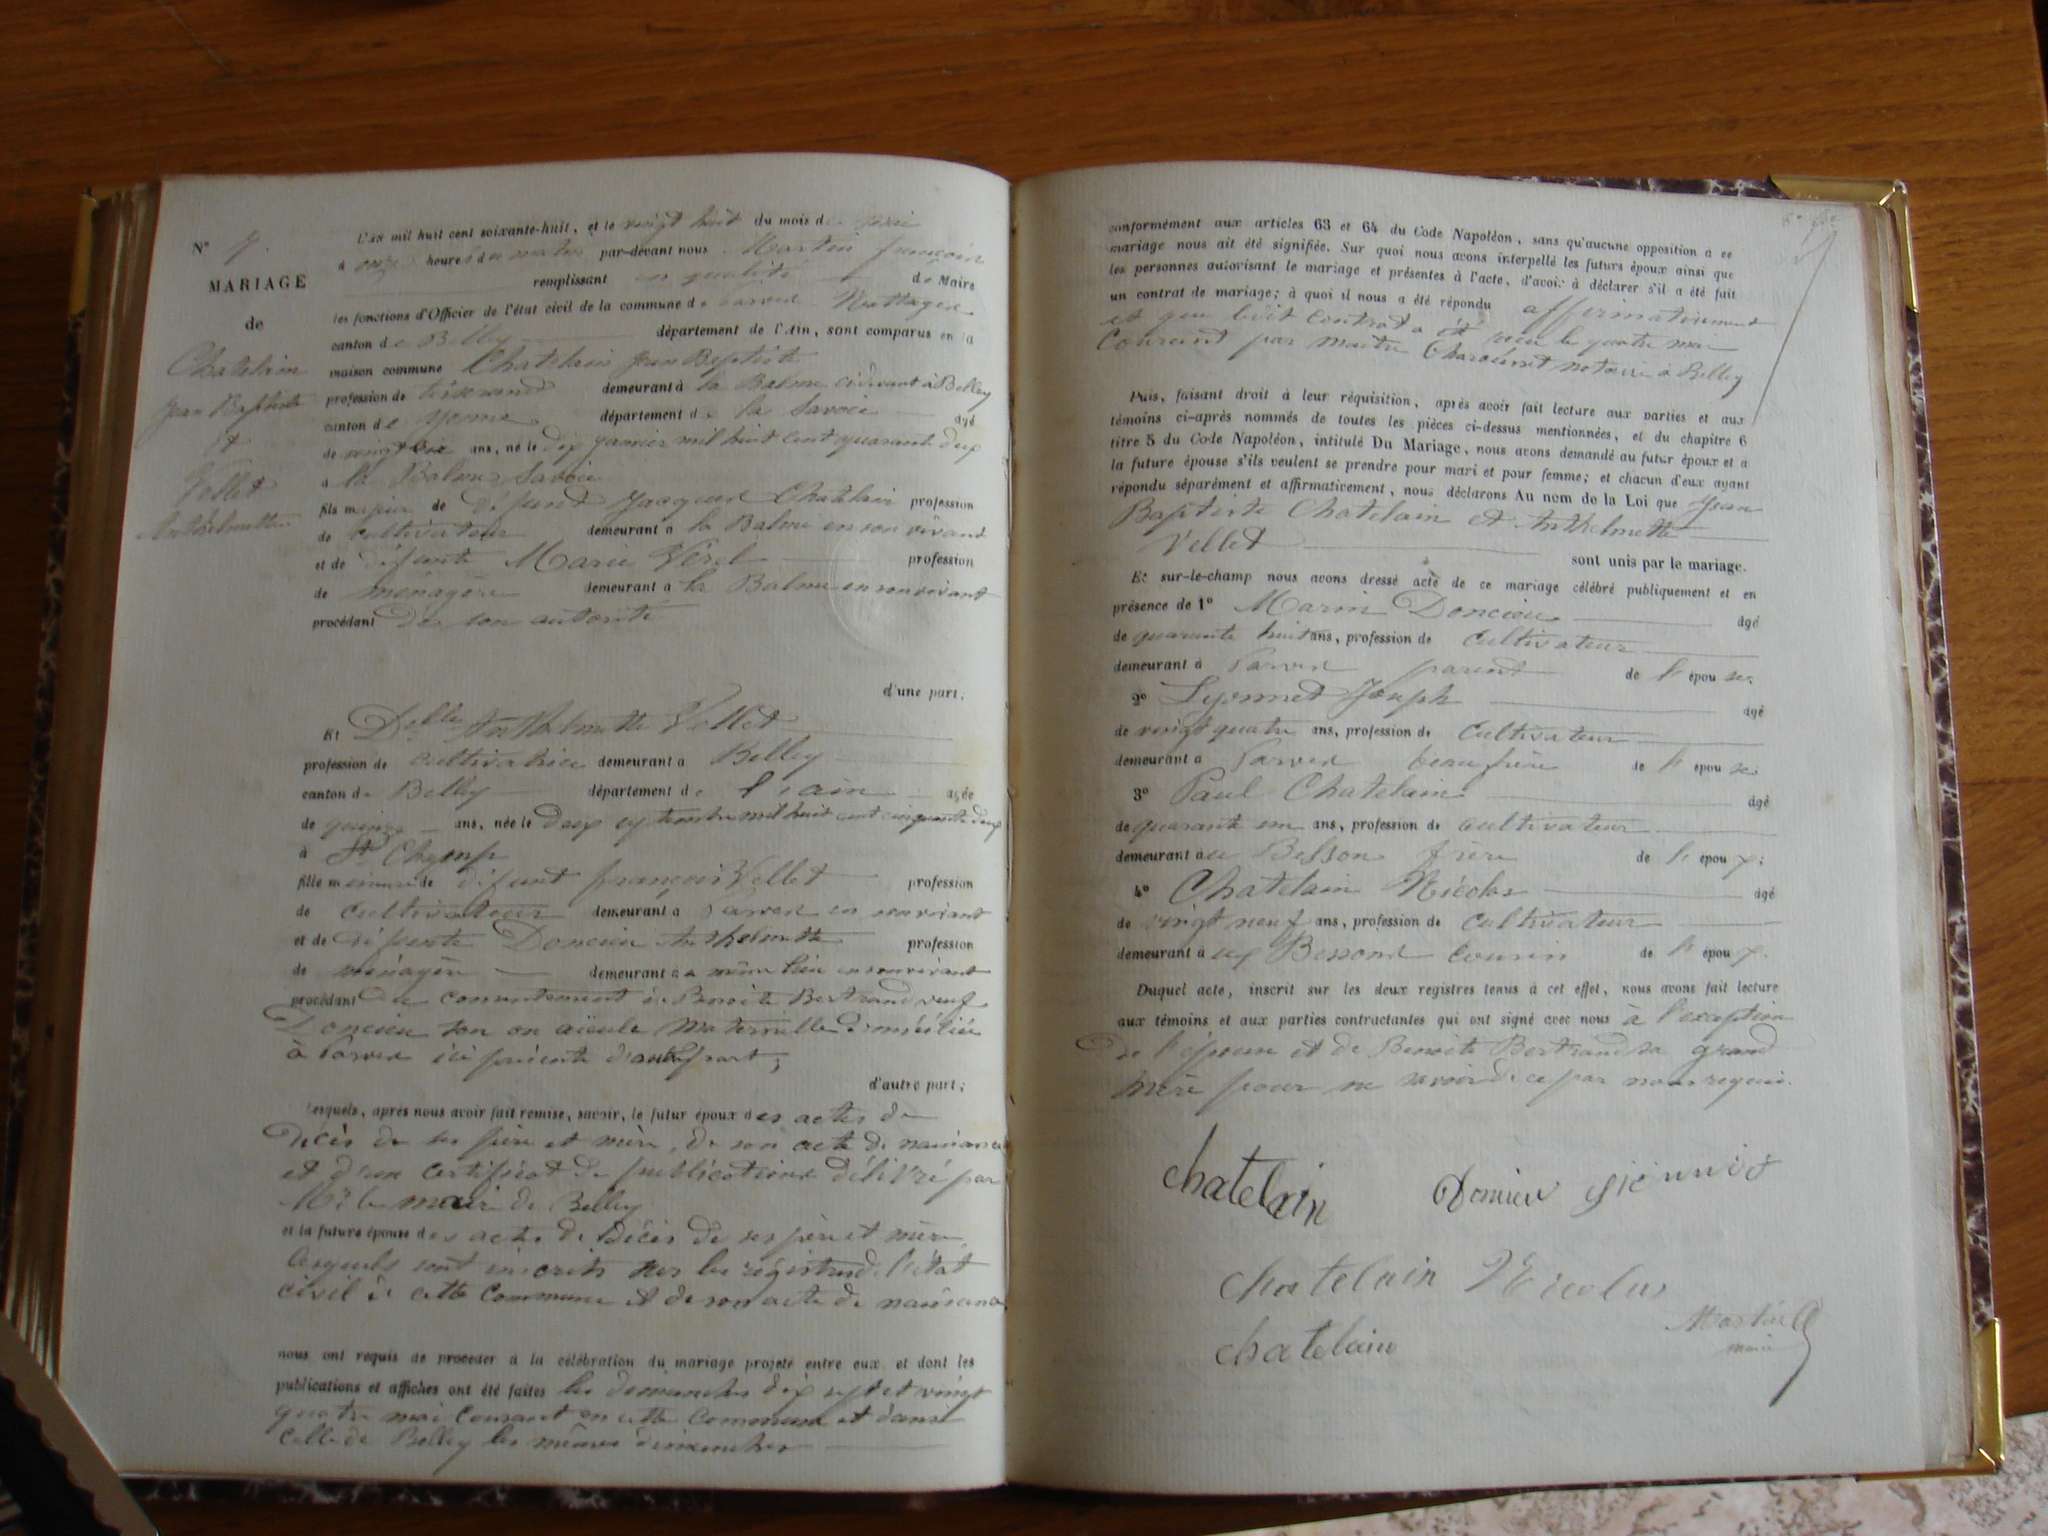 N° 7.
MARIAGE
de
Chatelain
Jean Baptiste
et
Vellet
Anthelmette
L'an mil huit cent soixante-huit, et le vingt huit du mois de mai
à onze heures du matin par-devant nous Martin françois
remplissant en qualité de Maire
les fonctions d'Officier de l'état civil de la commune de Parves Nattages
canton de Belley département de l'Ain, sont comparus en la
maison commune Chatelain Jean Baptiste
profession de tisserand demeurant à la Balme ci devant à Belley
canton de yenne département de la Savoie âgé
de vingt six ans, né le dix janvier mil huit cent quarante deux
à la Balme Savoie
fils majeur de défunt Jacques Chatelain profession
de cultivateur demeurant à la Balme en son vivant
et de défunte Marie Virel profession
de ménagère demeurant à la Balme en son vivant
procédant de son autorité
d'une part;
Et Delle Anthelmette Vellet
profession de cultivatrice demeurant à Belley
canton de Belley département de l'ain âgée
de quinze ans, née le deux septembre mil huit cent cinquante deux
à St Champ
fille mineure de défunt françois Vellet profession
de cultivateur demeurant à Parves en son vivant
et de défunte Doncieu Anthelmette profession
de ménagère demeurant au même lieu en son vivant
procédant du consentement de Benoite Bertrand veuf
Doncieu son aïeule maternelle domiciliée
à Parves ici présente d'autre part;
d'autre part;
lesquels, après nous avoir fait remise, savoir, le futur époux des actes de
décès de ses père et mère, de son acte de naissance
et d'un certificat de publications délivré par
Mr le maire de Belley
et la future épouse des actes de décès de ses père et mère
lesquels sont inscrits sur les registres de l'état
civil de cette commune et de son acte de naissance
nous ont requis de procéder à la célébration du mariage projeté entre eux et dont les
publications et affiches ont été faites les dimanches dix sept et vingt
quatre mai courant en cette commune et dans
celle de Belley les mêmes dimanches
conformément aux articles 63 et 64 du Code Napoléon, sans qu'aucune opposition à ce
mariage nous ait été signifiée. Sur quoi nous avons interpellé les futurs époux ainsi que
les personnes autorisant le mariage et présentes à l'acte, d'avoir à déclarer s'il a été fait
un contrat de mariage; à quoi il nous a été répondu affirmativement
et que ledit contrat a été reçu le quatre mai
courant par maître notaire à Belley
Puis, faisant droit à leur réquisition, après avoir fait lecture aux parties et aux
témoins ci-après nommés de toutes les pièces ci-dessus mentionnées, et du chapitre 6
titre 5 du Code Napoléon, intitulé Du Mariage, nous avons demandé au futur époux et à
la future épouse s'ils veulent se prendre pour mari et pour femme; et chacun d'eux ayant
répondu séparément et affirmativement, nous déclarons Au nom de la Loi que Jean
Baptiste Chatelain et Anthelmette
Vellet
sont unis par le mariage.
Et sur-le-champ nous avons dressé acte de ce mariage célébré publiquement et en
présence de 1° Marin Doncieu âgé
de quarante huit ans, profession de cultivateur
demeurant à Parves parent de l'épouse;
2° Lyonnet Joseph âgé
de vingt quatre ans, profession de cultivateur
demeurant à Parves beau frère de l'épouse;
3° Paul Chatelain âgé
de quarante un ans, profession de cultivateur
demeurant au Besson frère de l'époux;
4° Chatelain Nicolas âgé
de vingt neuf ans, profession de cultivateur
demeurant aux Bessons cousin de l'époux.
Duquel acte, inscrit sur les deux registres tenus à cet effet, nous avons fait lecture
aux témoins et aux parties contractantes qui ont signé avec nous à l'exception
de l'épouse et de Benoite Bertrand sa grand
mère pour ne savoir de ce par nous requis.
chatelain Doncieu
chatelain Nicolas
chatelain
Martin
maire